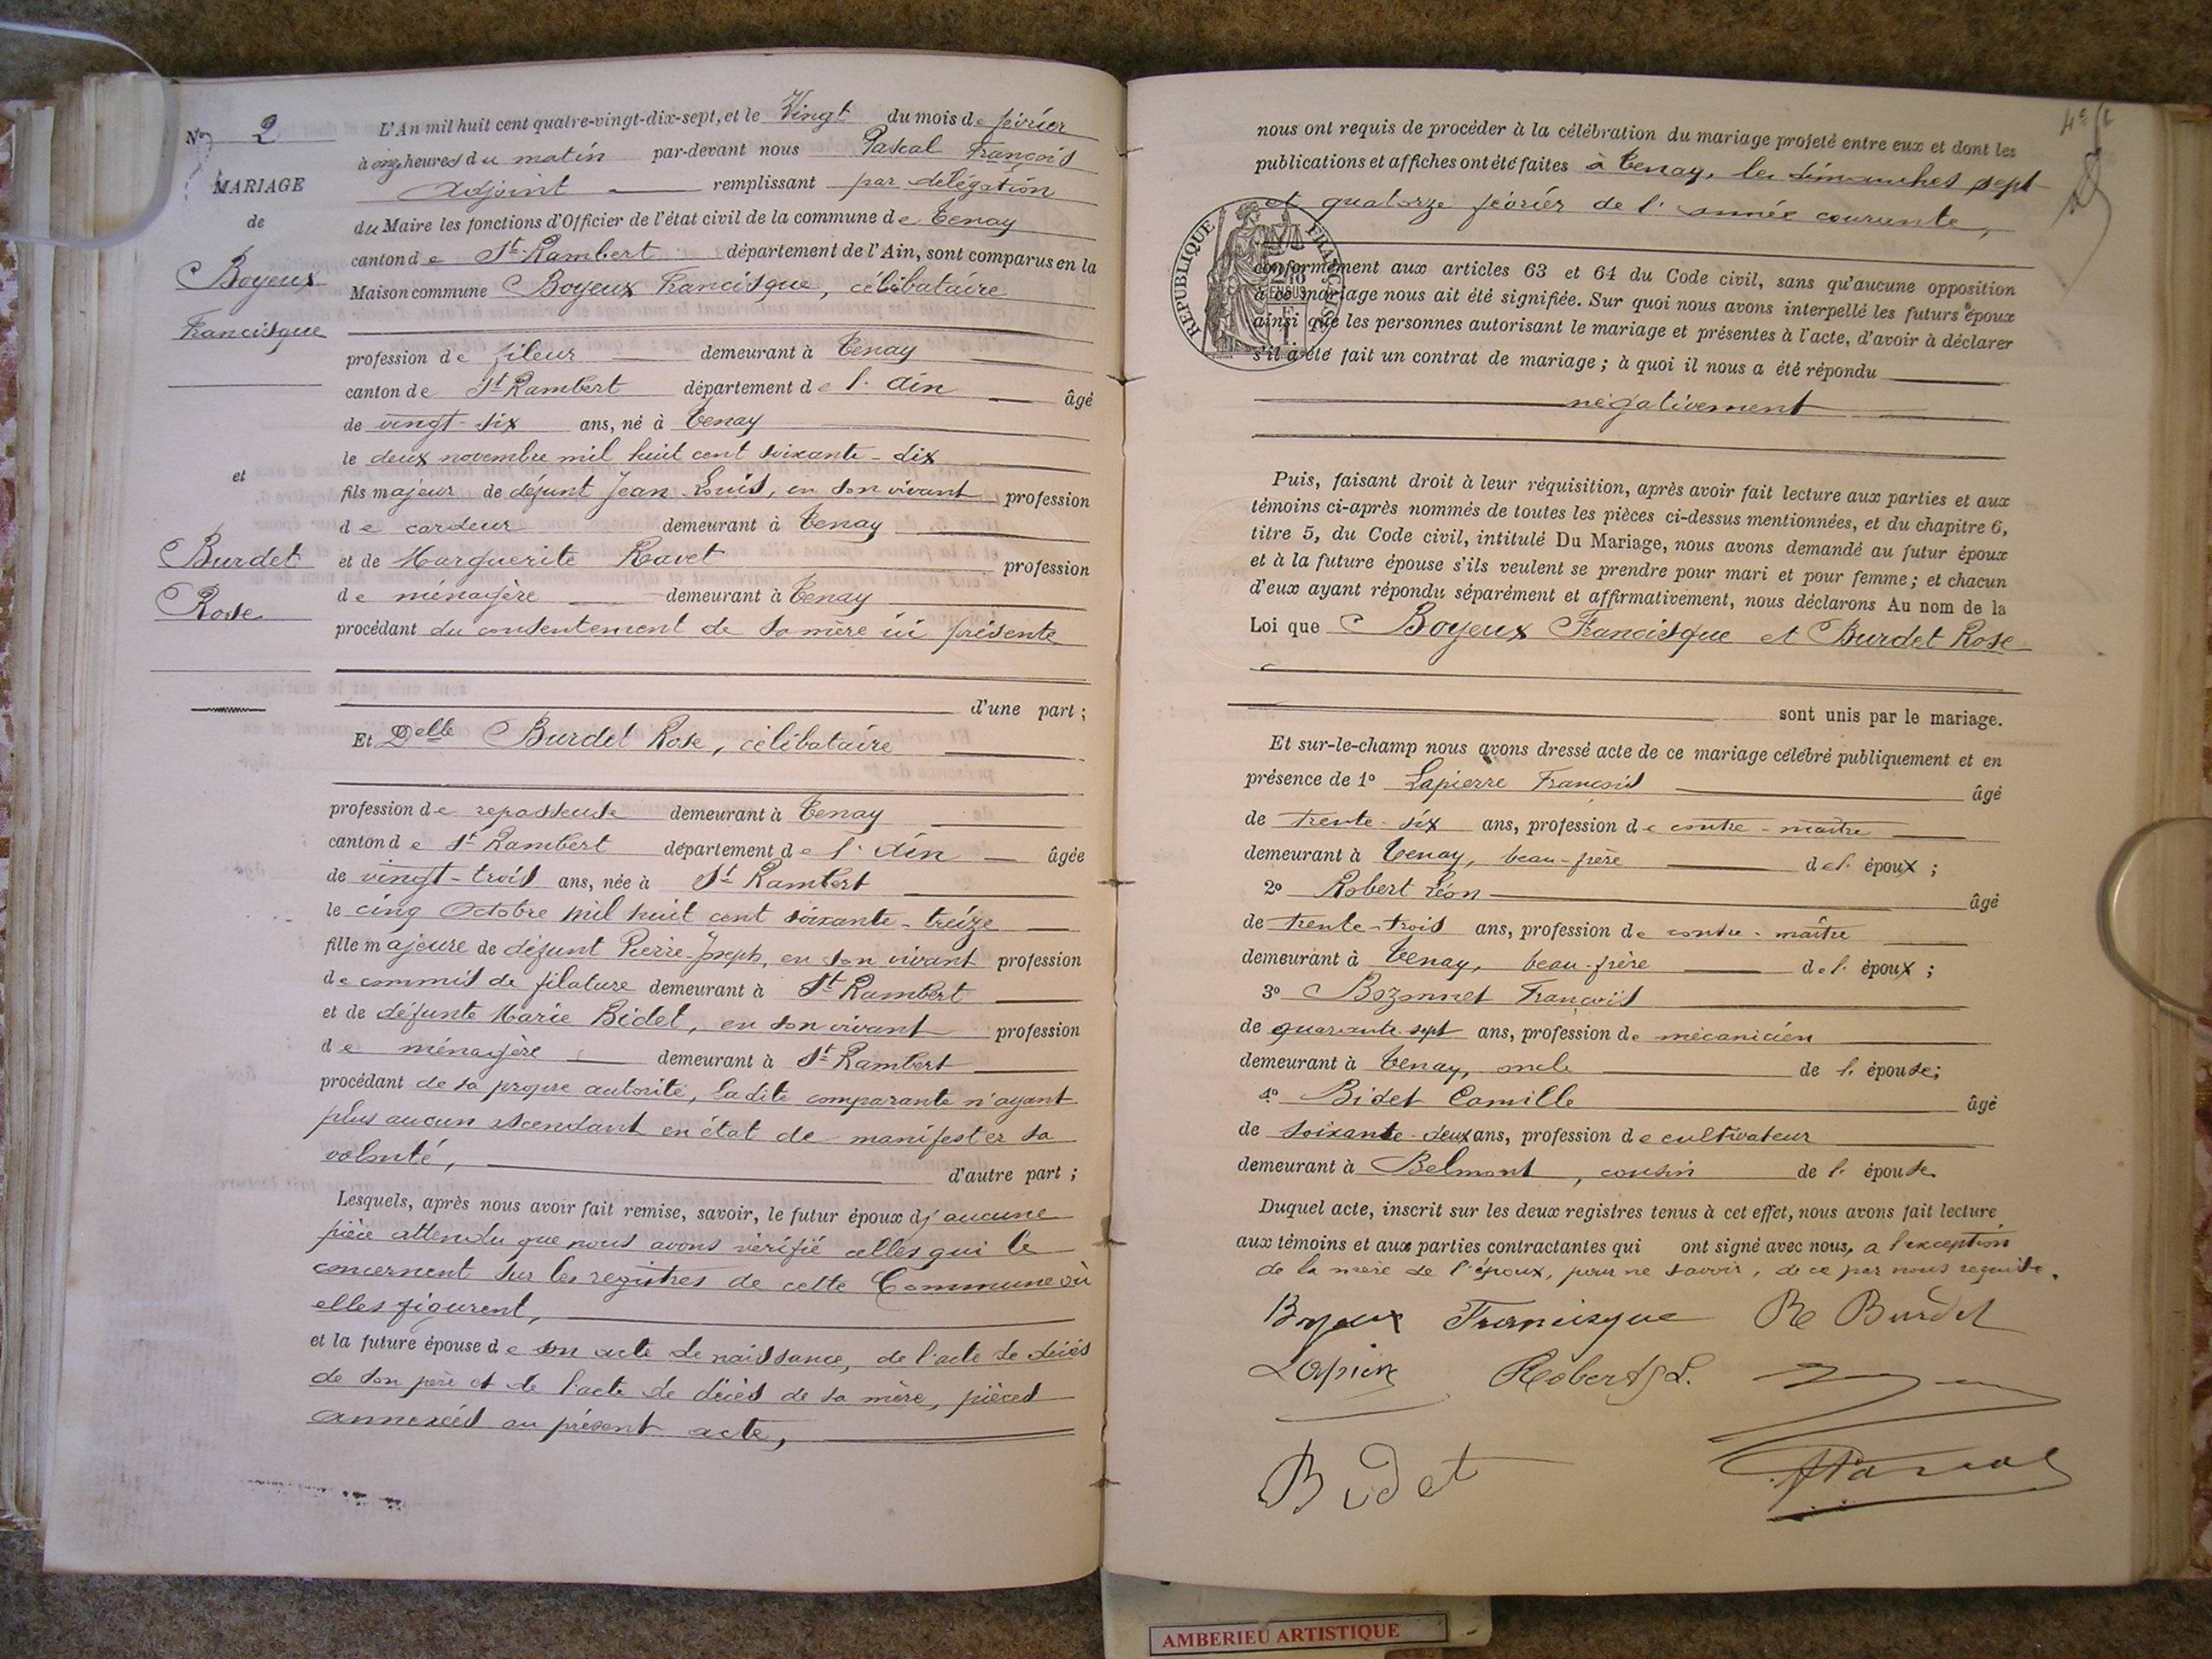 N° 2
MARIAGE
de
Boyeux
Francisque
et
Burdet
Rose
L'An mil huit cent quatre-vingt-dix-sept, et le Vingt du mois de février
à onze heures du matin par-devant nous Pascal François
Adjoint remplissant par délégation
du Maire les fonctions d'Officier de l'état civil de la commune de Tenay
canton de St Rambert département de l'Ain, sont comparus en la
Maison commune Boyeux Francisque, célibataire
profession de fileur demeurant à Tenay
canton de St Rambert département de l'Ain âgé
de vingt-six ans, né à Tenay
le deux novembre mil huit cent soixante-dix
fils majeur de défunt Jean Louis, en son vivant profession
de cardeur demeurant à Tenay
et de Marguerite Ravet profession
de ménagère demeurant à Tenay
procédant du consentement de sa mère ici présente
d'une part ;
Et Delle Burdet Rose, célibataire
profession de repasseuse demeurant à Tenay
canton de St Rambert département de l'Ain âgée
de vingt-trois ans, née à St Rambert
le cinq Octobre mil huit cent soixante-treize
fille majeure de défunt Pierre-Joseph, en son vivant profession
de commis de filature demeurant à St Rambert
et de défunte Marie Bidet, en son vivant profession
de ménagère demeurant à St Rambert
procédant de sa propre autorité, ladite comparante n'ayant
plus aucun ascendant en état de manifester sa
volonté, d'autre part ;
Lesquels, après nous avoir fait remise, savoir, le futur époux d'aucune
pièce attendu que nous avons vérifié celles qui le
concernent sur les registres de cette Commune où
elles figurent,
et la future épouse de son acte de naissance, de l'acte de décès
de son père et de l'acte de décès de sa mère, pièces
annexées au présent acte,
nous ont requis de procéder à la célébration du mariage projeté entre eux et dont les
publications et affiches ont été faites à Tenay, les dimanches sept
et quatorze février de l'année courante,
REPUBLIQUE FRANÇAISE
conformément aux articles 63 et 64 du Code civil, sans qu'aucune opposition
à ce mariage nous ait été signifiée. Sur quoi nous avons interpellé les futurs époux
ainsi que les personnes autorisant le mariage et présentes à l'acte, d'avoir à déclarer
s'il a été fait un contrat de mariage ; à quoi il nous a été répondu
négativement
Puis, faisant droit à leur réquisition, après avoir fait lecture aux parties et aux
témoins ci-après nommés de toutes les pièces ci-dessus mentionnées, et du chapitre 6,
titre 5, du Code civil, intitulé Du Mariage, nous avons demandé au futur époux
et à la future épouse s'ils veulent se prendre pour mari et pour femme ; et chacun
d'eux ayant répondu séparément et affirmativement, nous déclarons Au nom de la
Loi que Boyeux Francisque et Burdet Rose
sont unis par le mariage.
Et sur-le-champ nous avons dressé acte de ce mariage célébré publiquement et en
présence de 1° Lapierre François âgé
de trente-six ans, profession de contre-maître
demeurant à Tenay, beau-frère de l'époux ;
2° Robert Léon âgé
de trente-trois ans, profession de contre-maître
demeurant à Tenay, beau-frère de l'époux ;
3° Bozonnet François
de quarante-sept ans, profession de mécanicien
demeurant à Tenay, oncle de l'épouse ;
4° Bidet Camille âgé
de soixante-deux ans, profession de cultivateur
demeurant à Belmont, cousin de l'épouse
Duquel acte, inscrit sur les deux registres tenus à cet effet, nous avons fait lecture
aux témoins et aux parties contractantes qui ont signé avec nous, à l'exception
de la mère de l'époux, pour ne savoir, de ce par nous requise.
Boyeux Francisque Re Burdet
Lapierre Robert L.
Bidet Pascal
AMBERIEU ARTISTIQUE